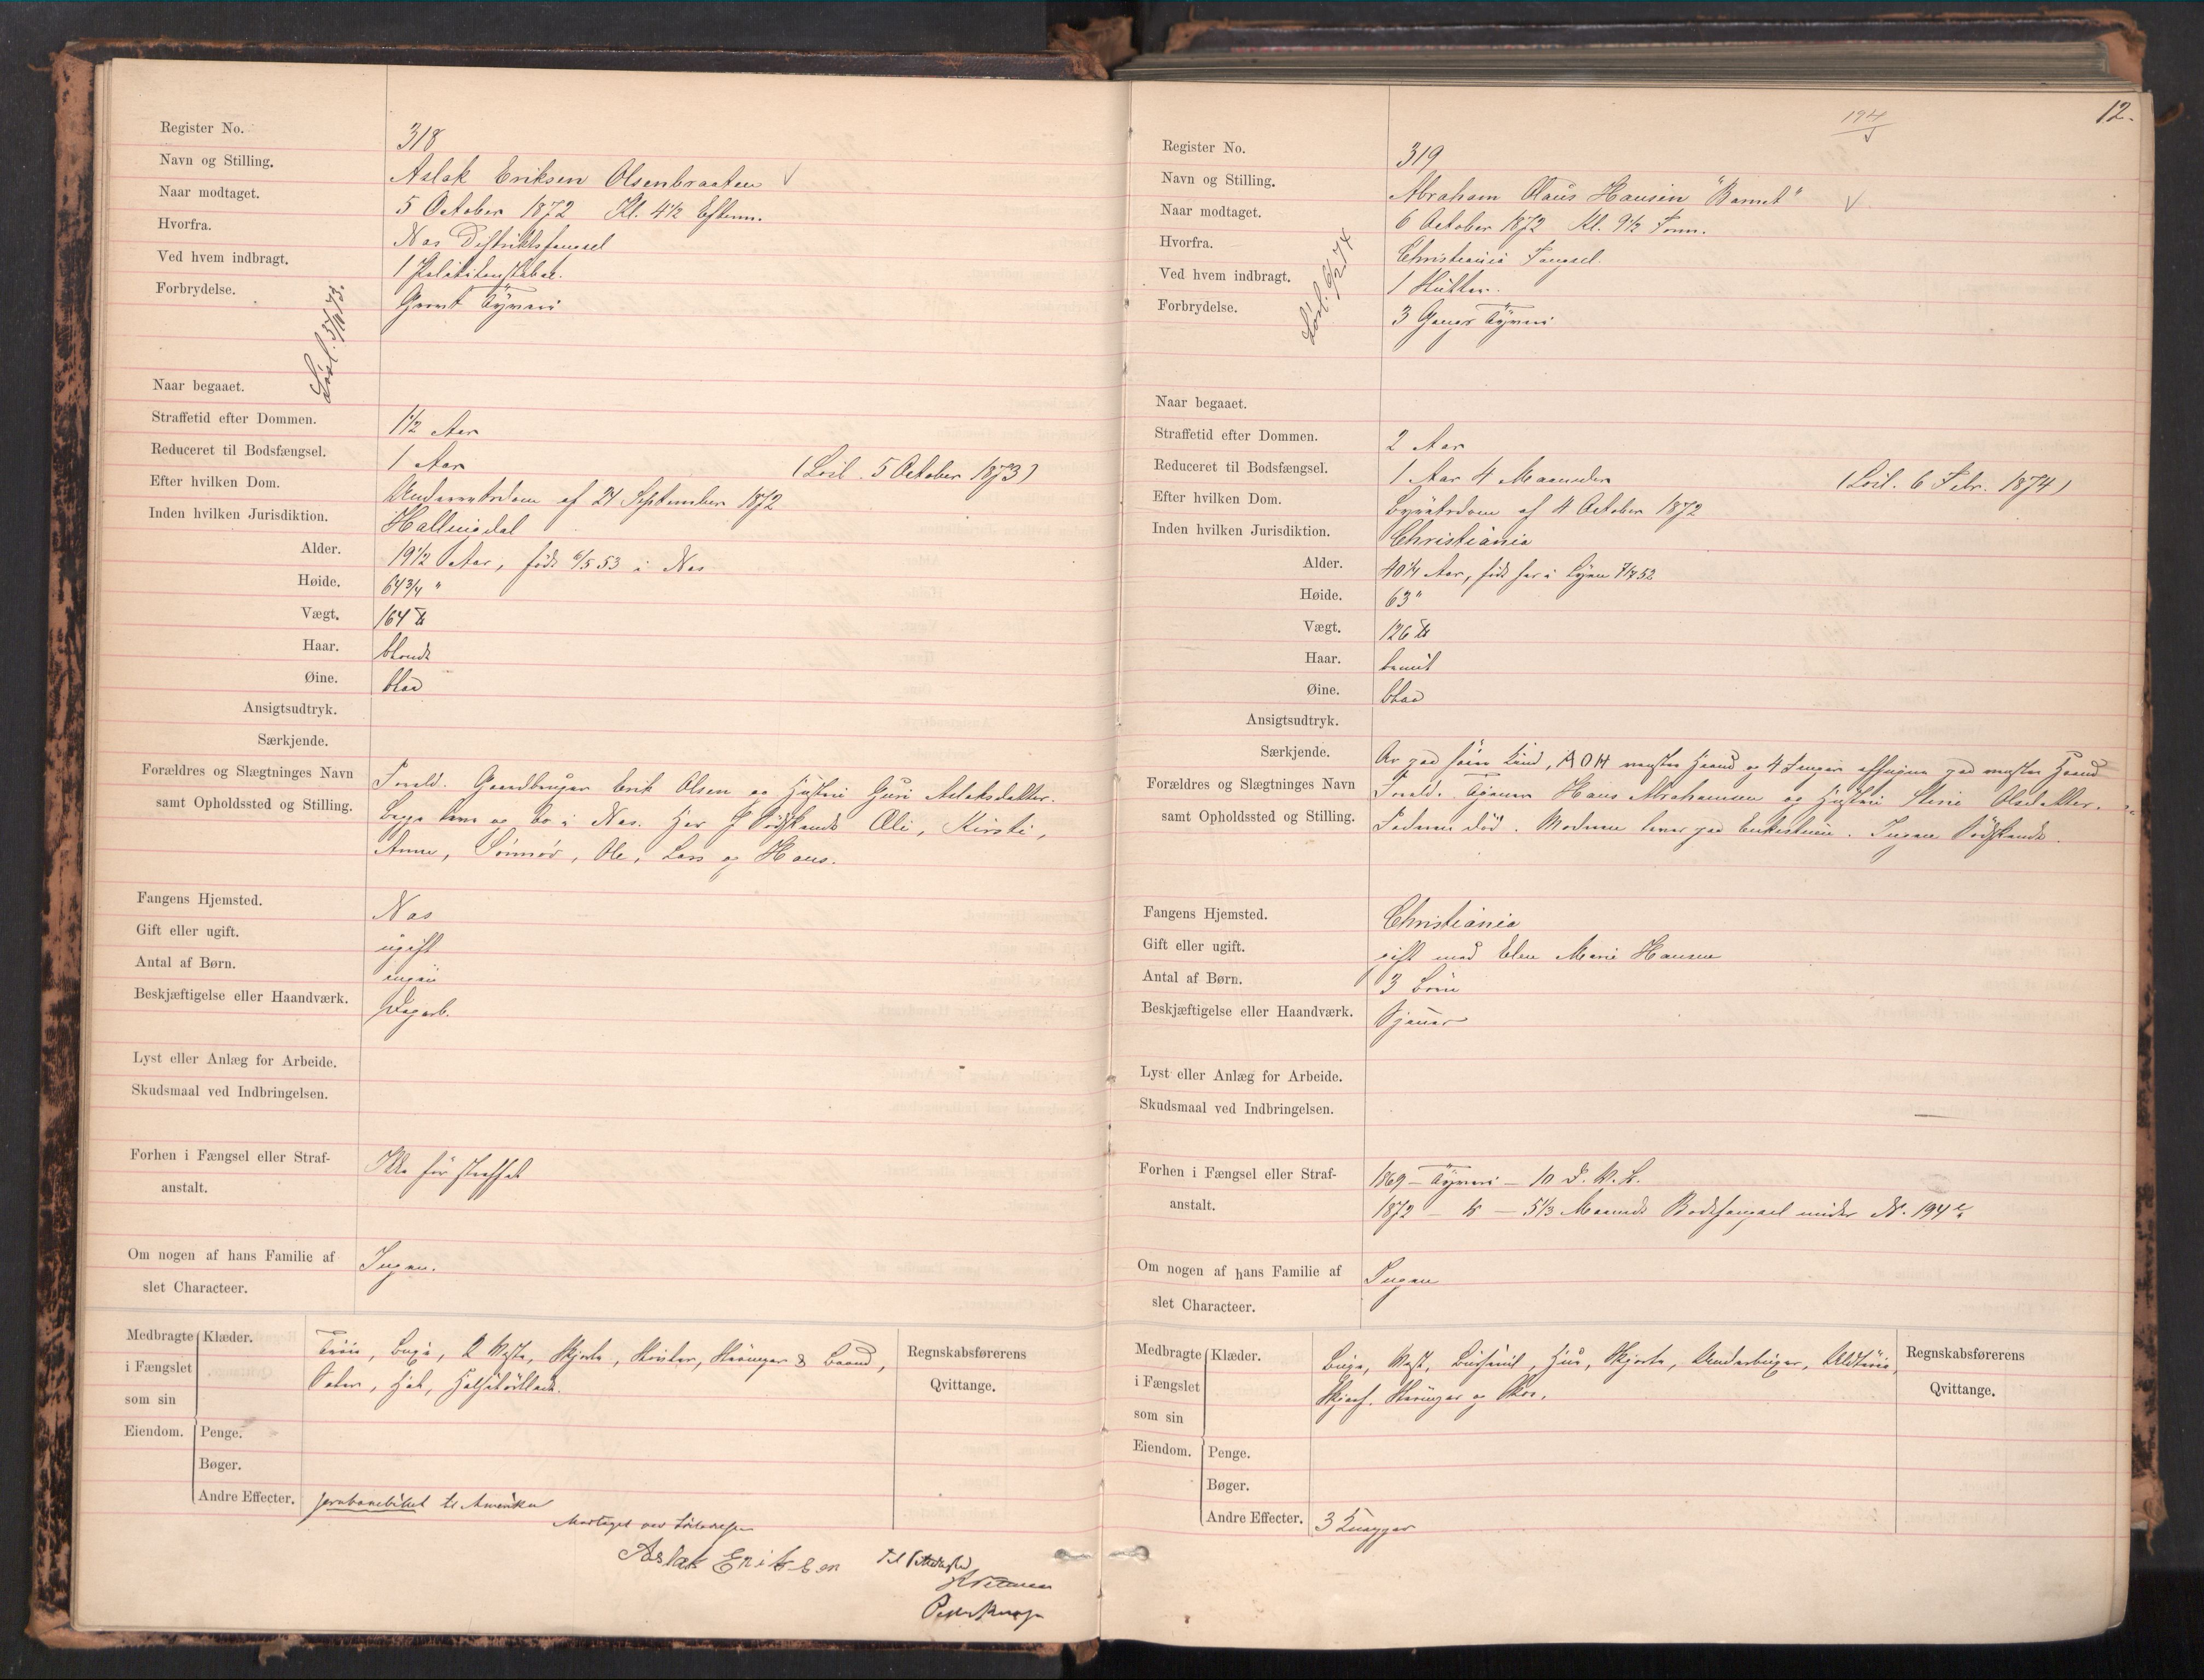 Register No. 318
Navn og Stilling. Aslak Eriksen Olsenbraaten √
Naar modtaget. 5 October 1872 Kl. 4 1/2 Efterm.
Hvorfra. Næs Distriktsfængsel
Ved hvem indbragt. 1 Politibetjent
Forbrydelse. Grovt Tyveri
Løsl. 5/10 73.
Naar begaaet.
Straffetid efter Dommen. 1 1/2 Aar
Reduceret til Bodsfængsel. 1 Aar (Løsl. 5 October 1873)
Efter hvilken Dom. Underretsdom af 24 September 1872
Inden hvilken Jurisdiktion. Hallingdal
Alder. 19 1/2 Aar, født 6/5 53 i Næs
Høide. 64 3/4 "
Vægt. 164 ℔
Haar. blondt
Øine. blaa
Ansigtsudtryk.
Særkjende.
Forældres og Slægtninges Navn Foræld. Gaardbruger Erik Olsen og Hustru Guri Aslaksdatter.
samt Opholdssted og Stilling. Begge leve og bo i Næs. Har 7 Sødskende Oli, Kirsti,
Anne, Sønnøv, Ole, Lars og Hans.
Fangens Hjemsted. Næs
Gift eller ugift. ugift
Antal af Børn. ingen
Beskjæftigelse eller Haandværk. Dagarb.
Lyst eller Anlæg for Arbeide.
Skudsmaal ved Indbringelsen.
Forhen i Fængsel eller Straf- Ikke før straffet
anstalt.
Om nogen af hans Familie af Ingen.
slet Characteer.
Medbragte Klæder. Trøie, Buxe, 2 Veste, Skjorte, Støvler, Strømper & Baand,
i Fængslet Seler, Hat, Halstørklæde.
som sin
Eiendom. Penge.
Bøger.
Andre Effecter. Jernbanebillet til Amerika
Regnskabsførerens
Qvittange.
Modtaget ved Løsladelsen
Aslak Eriksen
Til Vitterlighed
12.
194
Register No. 319
Navn og Stilling. Abraham Olaus Hansen "Barnet" √
Naar modtaget. 6 October 1872 Kl. 9 1/2 Form.
Hvorfra. Christiania Fængsel.
Ved hvem indbragt. 1 Slutter.
Forbrydelse. 3 Gange Tyveri
Løsl. 6/2 74
Naar begaaet.
Straffetid efter Dommen. 2 Aar
Reduceret til Bodsfængsel. 1 Aar 4 Maaneder (Løsl. 6 Febr. 1874)
Efter hvilken Dom. Byretsdom af 4 October 1872
Inden hvilken Jurisdiktion. Christiania
Alder. 40 1/4 Aar, født her i Byen
Høide. 63 "
Vægt. 126 ℔
Haar. brunt
Øine. blaa
Ansigtsudtryk.
Særkjende. Ar paa høire Kind, AOH venstre Haand og 4 Fingre afhugne paa venstre Haand
Forældres og Slægtninges Navn Foræld. Tjener Hans Abrahamsen og Hustru Stine Olsdatter.
samt Opholdssted og Stilling. Faderen død. Moderen lever paa Enkestuen. Ingen Sødskende.
Fangens Hjemsted. Christiania
Gift eller ugift. gift med Elen Marie Hansen
Antal af Børn. 3 Børn
Beskjæftigelse eller Haandværk. Sjouer
Lyst eller Anlæg for Arbeide.
Skudsmaal ved Indbringelsen.
Forhen i Fængsel eller Straf- 1869 – Tyveri – 10 D. V. B.
anstalt. 1872 – do – 5 1/3 Maaneds Bodsfængsel under No. 194
Om nogen af hans Familie af Ingen
slet Characteer.
Medbragte Klæder. Buxe, Vest, Busserul, Hue, Skjorte, Underbuxer, Uldtrøie,
i Fængslet Skjærf, Strømper og Sko.
som sin
Eiendom. Penge.
Bøger.
Andre Effecter. 3 Knapper
Regnskabsførerens
Qvittange.